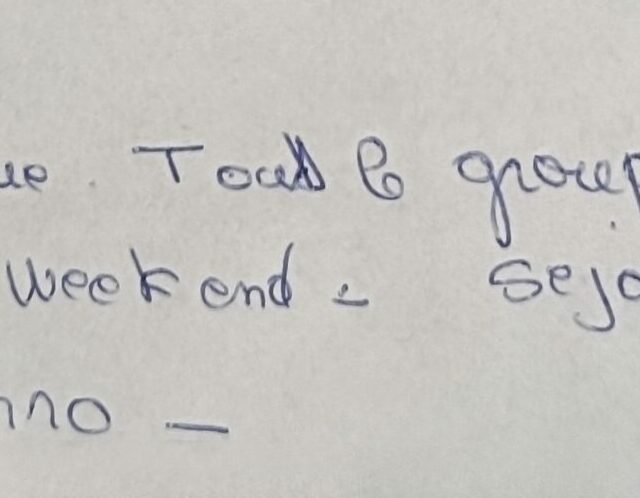 ue. Tout le group
week end - sejo
nno -